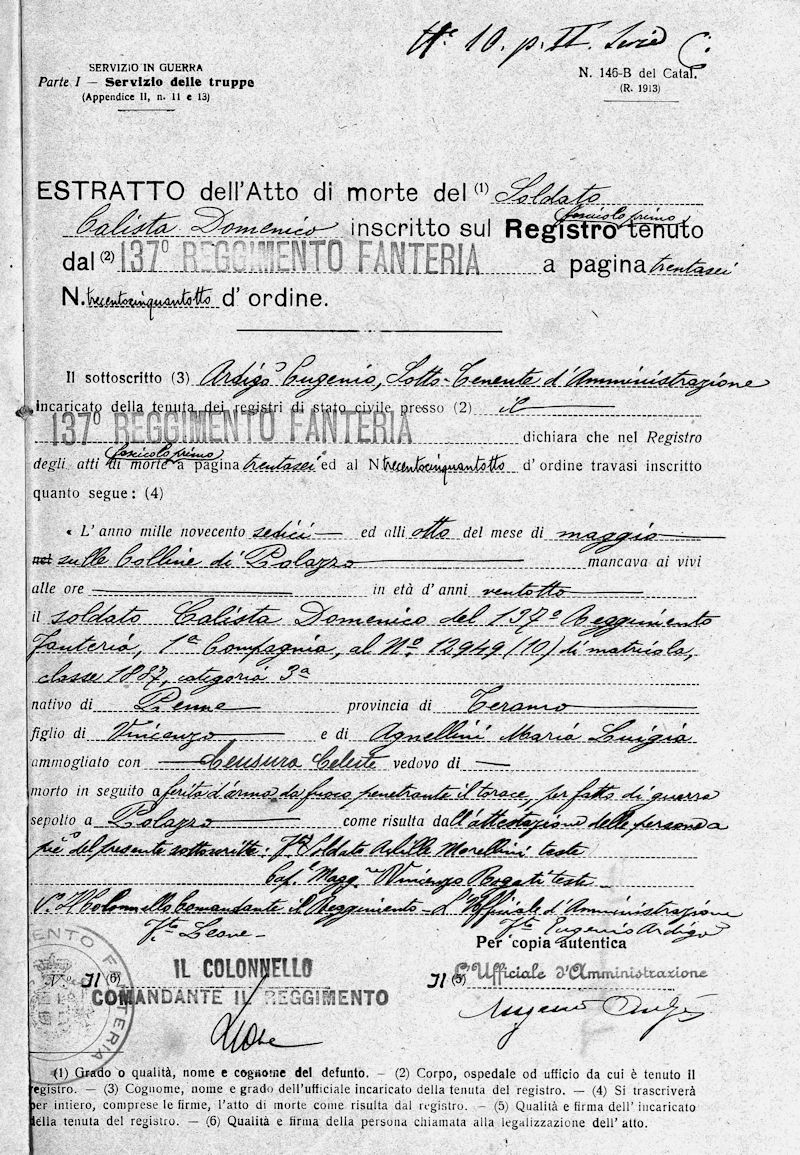 N.º 10. p. II. Serie C.
SERVIZIO IN GUERRA
Parte I — Servizio delle truppe
(Appendice II, n. 11 e 13)
N. 146-B del Catal.
(R. 1913)
ESTRATTO dell'Atto di morte del (1) Soldato
Calista Domenico inscritto sul Registro tenuto
fascicolo primo
dal (2) 137º REGGIMENTO FANTERIA a pagina trentasei
N. trecentocinquantotto d'ordine.
Il sottoscritto (3) Ardigò Eugenio, Sotto-Tenente d'Amministrazione
incaricato della tenuta dei registri di stato civile presso (2) il
137º REGGIMENTO FANTERIA dichiara che nel Registro
fascicolo primo
degli atti di morte a pagina trentasei ed al N trecentocinquantotto d'ordine travasi inscritto
quanto segue: (4)
« L'anno mille novecento sedici ed alli otto del mese di maggio
nel sulle Colline di Polazzo mancava ai vivi
alle ore in età d'anni ventotto
il soldato Calista Domenico del 137º Reggimento
Fanteria, 1ª Compagnia, al Nº 12949 (10) di matricola,
classe 1887, categoria 3ª
nativo di Penne provincia di Teramo
figlio di Vincenzo e di Agnellini Maria Luigia
ammogliato con Celeste vedovo di —
morto in seguito a ferita d'arma da fuoco penetrante il torace, per fatto di guerra
sepolto a Polazzo come risulta dall'attestazione delle persone a
piè del presente sottoscritte: Fto Soldato Achille Morellini teste
Cap. Magg. Vincenzo Bugati teste
Il Colonnello Comandante il Reggimento - L'Ufficiale d'Amministrazione
Fto Leone - Fto Eugenio Ardigò
Per copia autentica
Il (6) IL COLONNELLO Il (5) L'Ufficiale d'Amministrazione
COMANDANTE IL REGGIMENTO
Leone Eugenio Ardigò
(1) Grado o qualità, nome e cognome del defunto. — (2) Corpo, ospedale od ufficio da cui è tenuto il
registro. — (3) Cognome, nome e grado dell'ufficiale incaricato della tenuta del registro. — (4) Si trascriverà
per intiero, comprese le firme, l'atto di morte come risulta dal registro. — (5) Qualità e firma dell'incaricato
della tenuta del registro. — (6) Qualità e firma della persona chiamata alla legalizzazione dell'atto.